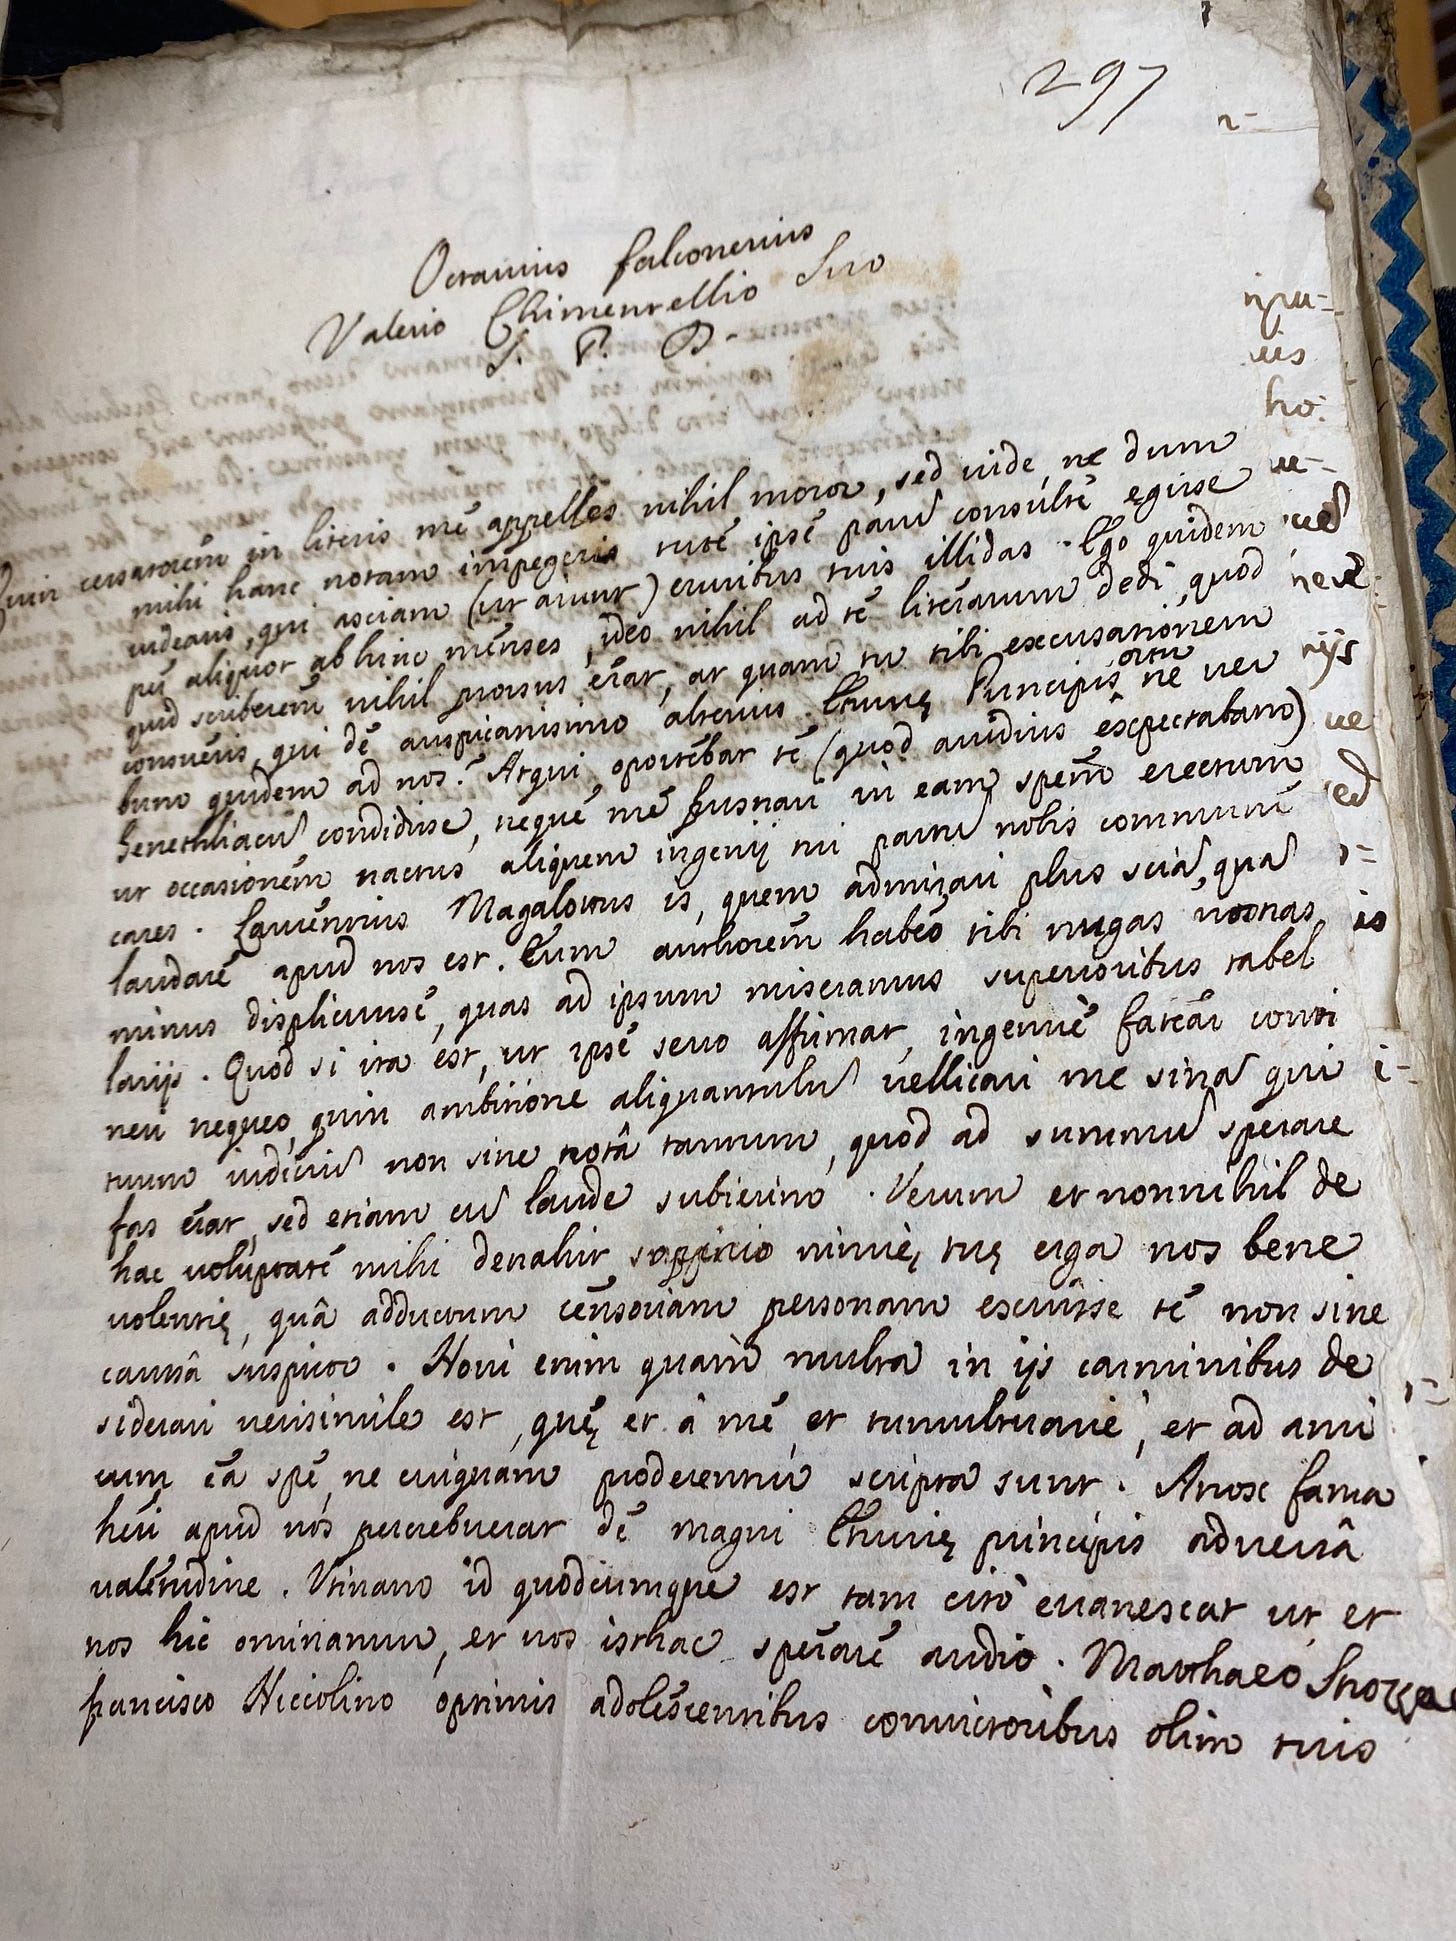 297
Octavius Falconerius
Valerio Chimentellio Suo
S. P. D.
Quin cessatorem in literis me appelles nihil moror, sed vide, ne dum
mihi hanc notam impegeris tute ipse parũ consultè egisse
videaris, qui asciam (ut aiunt) cruribus tuis illidas. Ego quidem
per aliquot abhinc menses, ideo nihil ad te literarum dedi, quod
quid scriberem nihil prorsus erat, at quam tu tibi excusationem
conueris, qui de auspicatissimo alterius Etrurię Principis ortu ne ver
bum quidem ad nos? Atqui oportebat te (quod avidius expectabam)
Genethliacũ condidisse, neque me frustrari in eam spem erectum
ut occasionem nactus aliquem ingenij tui partũ nobis communi
cares. Laurentius Magalottus is, quem admirari plus sciã, quã
laudare apud nos est. Eum authorem habeo tibi nugas nostras
minus displicuisse, quas ad ipsum miseramus superioribus tabel
larijs. Quod si ita est, ut ipse serio affirmat, ingenuè fateãr conti
neri nequeo, quin ambitione aliquantulũ vellicari me sinã qui
tuum iudiciũ non sine notâ tantum, quod ad summũ sperare
fas erat, sed etiam cũ laude subierim. Verum et nonnihil de
hac voluptate mihi detrahit suspicio nimię tuę erga nos bene
volentię, quâ adductum censoriam personam exuisse te non sine
caussâ suspicor. Novi enim quam multa in ijs carminibus de
siderari verisimile est, quę et â me, et tumultuariè, et ad ami
cum eâ spe, ne cuiquam proderentur scripta sunt. Atrox fama
heri apud nos percrebuerat de magni Etrurię principis adversâ
valetudine. Utinam id quodcumque est tam citò evanescat ut et
nos hic ominamur, et vos isthac sperare audio. Matthaeo Strozzae
Francisco Niccolino optimis adolescentibus convictoribus olim tuis